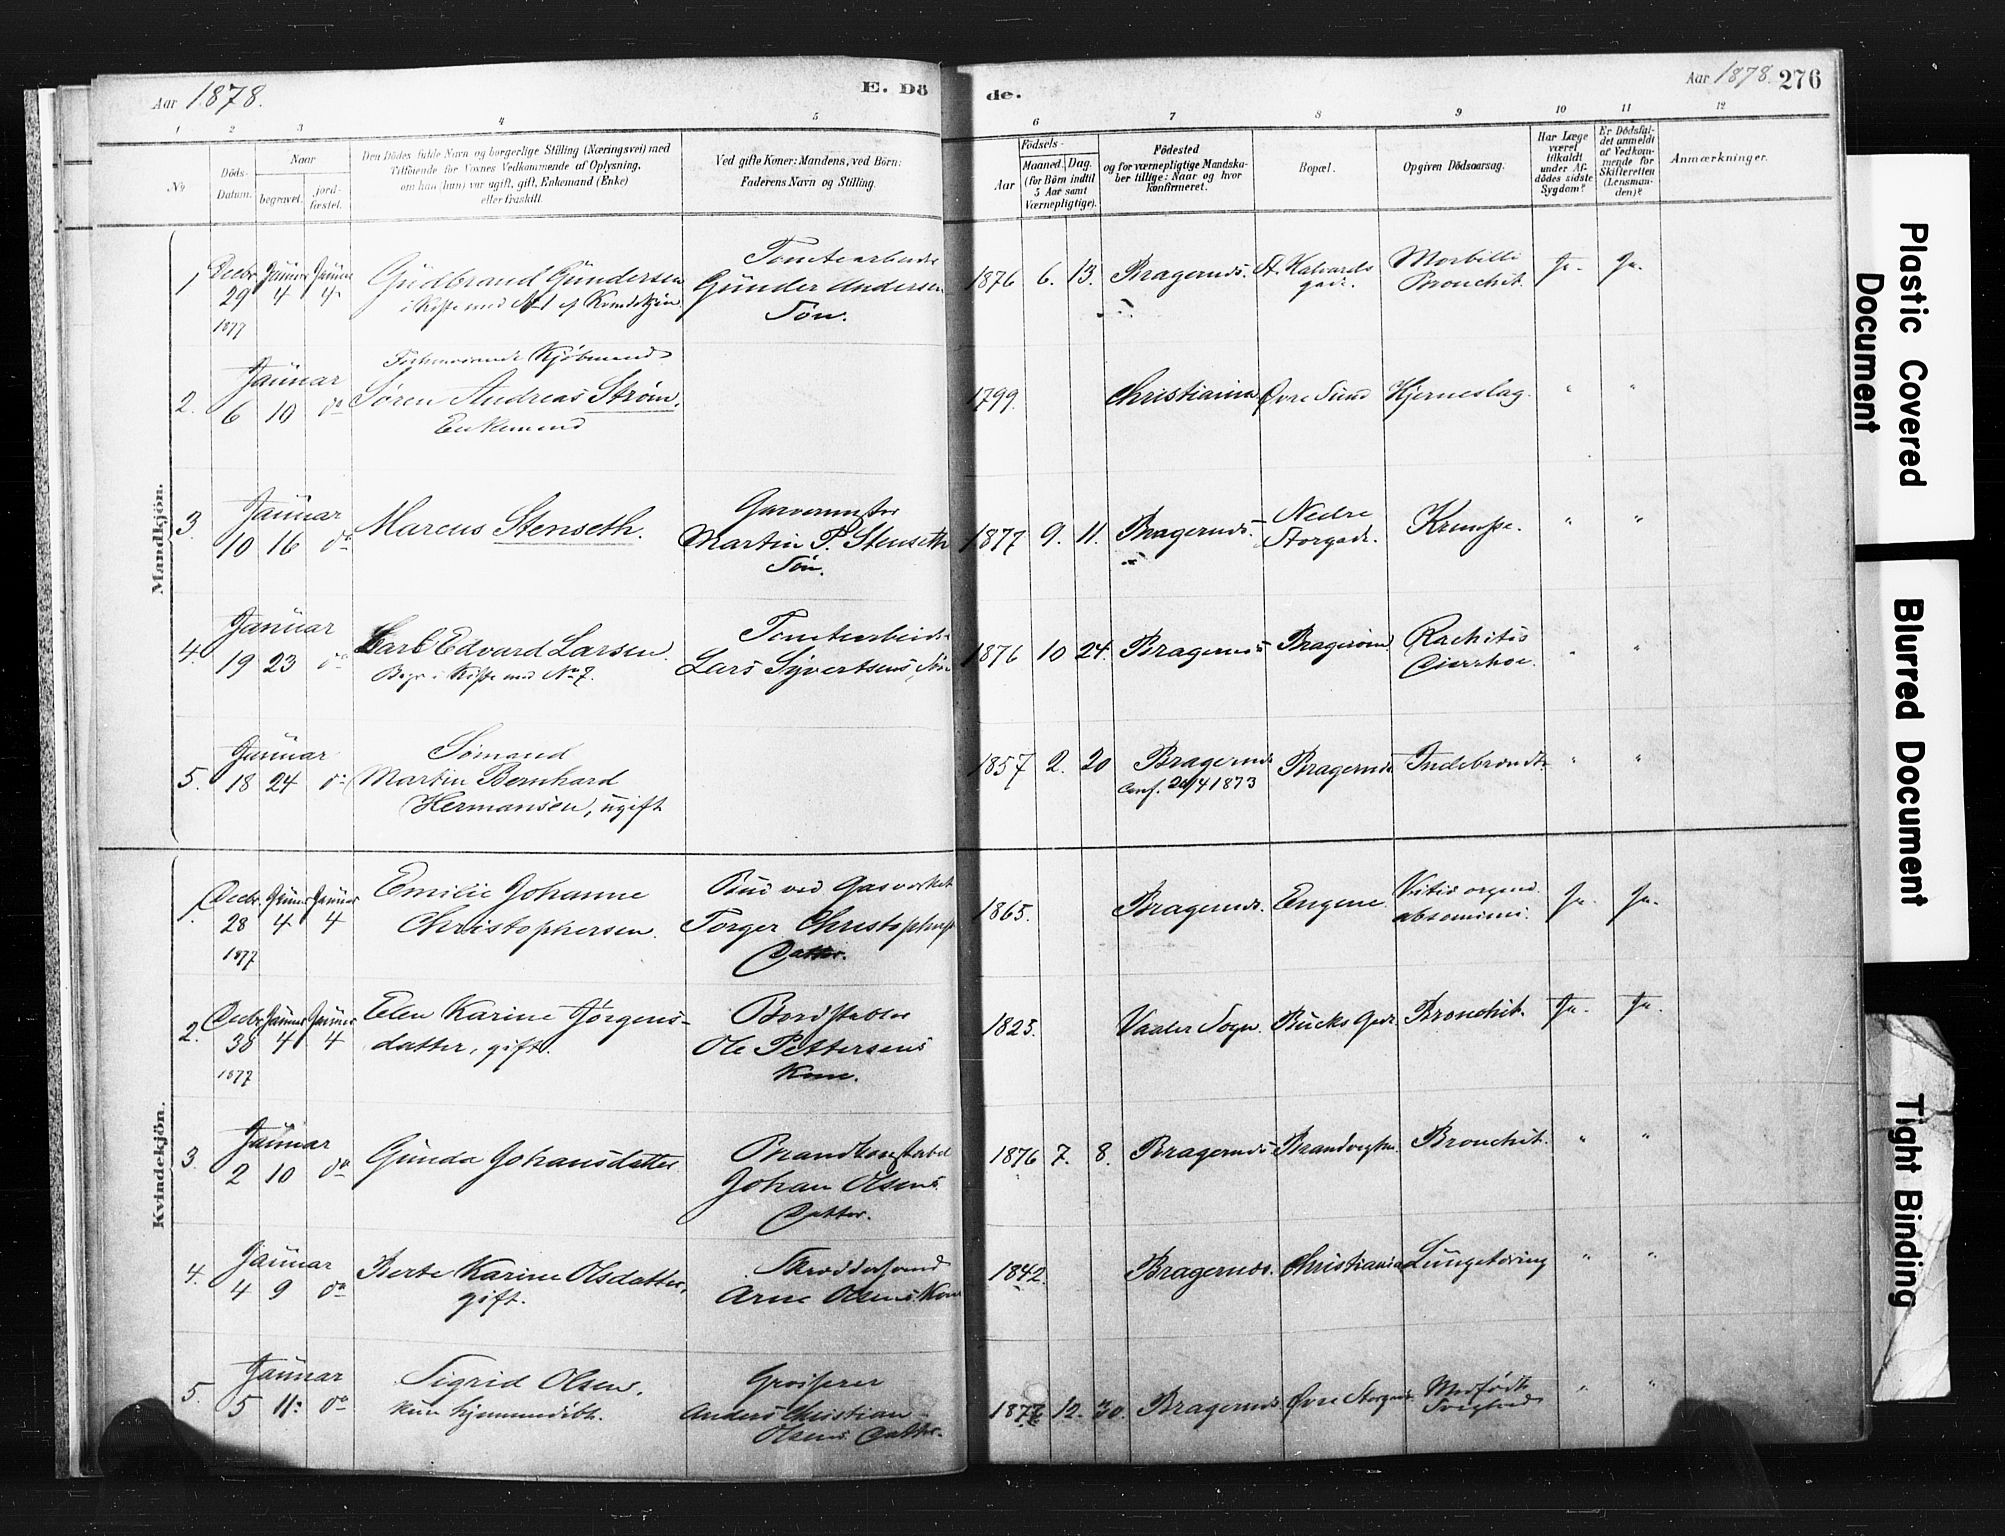 Aar 1878.
E. Dö
de.
Aar 1878. 276
1 2 3 4 5 6 7 8 9 10 11 12
No
Döds-Datum.
Naar
begravet.
jord-fæstet.
Den Dödes fulde Navn og borgerlige Stilling (Næringsvei) med
Tilföiende for Voxnes Vedkommende af Oplysning,
om han (hun) var ugift, gift, Enkemand (Enke)
eller fraskilt.
Ved gifte Koner: Mandens, ved Börn:
Faderens Navn og Stilling.
Födsels-
Aar
Maaned. Dag.
(for Börn indtil
5 Aar samt
Værnepligtige).
Födested
og for værnepligtige Mandska-
ber tillige: Naar og hvor
konfirmeret.
Bopæl.
Opgiven Dödsaarsag.
Har Læge
været
tilkaldt
under Af-
dödes sidste
Sygdom?
Er Dödsfal-
det anmeldt
af Vedkom-
mende for
Skifteretten
(Lensman-
den)?
Anmærkninger.
Mandkjön.
1 Decbr 29 1877 Januar 4 Januar 4 Gudbrand Gundersen
i Kiste med No 1 af Kvindekjøn
Tomtearbeider
Gunder Andersen
Søn.
1876 6. 13. Bragernæs. St. Halvards
gade. Morbilli
Bronchit. Ja. Ja.
2. Januar 6 10 do
Forhenværende Kjøbmand
Søren Andreas Strøm.
Enkemand
1799. Christiania Øvre Sund Hjerneslag. " "
3 Januar 10 16 do Marcus Stenseth.
Garvermester
Martin P. Stenseth
Søn.
1877 9. 11. Bragernæs. Nedre
Storgade. Krampe. " "
4. Januar 19 23 do Carl Edvard Larsen.
Begr. i Kiste med No 7.
Tomtearbeider
Lars Syvertsens Søn
1876 10 24. Bragernæs Bragerøen Rachitis
Diarrhoe. " "
5. Januar 18 24 do Sømand
Martin Bernhard
Hermansen, ugift
1857 2. 20 Bragernæs
Conf. 20/4 1873 Bragernæs. Indebrændt. " "
Kvindekjön.
1. Decbr. 28 1877 Januar 4 Januar 4 Emilie Johanne
Christophersen.
Bud ved Gasverket
Torger Christophersen
Datter.
1865. Bragernæs. Engene. Vitid organ.
abdominis. Ja. Ja.
2. Decbr 30 1877 Januar 4 Januar 4 Elen Karine Jørgens-
datter, gift.
Bordstabler
Ole Pettersens
Kone.
1825. Vaaler Sogn. Bücks Gade. Bronchit. Ja. Ja.
3. Januar 2 10 do Gunda Johansdatter
Brandkonstabel
Johan Olsens
Datter.
1876 7. 8. Bragernæs Brandvagten. Bronchit. " "
4. Januar 4 9 do Berte Karine Olsdatter,
gift.
Skræddersvend
Arne Olsens Kone
1842. Bragernæs. Christiania Lungetæring " "
5. Januar 5 11. do Sigrid Olsen.
kun hjemmedøbt.
Grosserer
Anders Christian
Olsens Datter.
1877 12. 30. Bragernæs. Øvre Storgade. Medfødt
Svaghed " "
Plastic Covered
Document
Blurred Document
Tight Binding